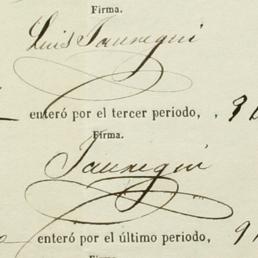 Firma.
Luis Jauregui
enteró por el tercer periodo,
Firma.
Jauregui
enteró por el último periodo,
Firma.